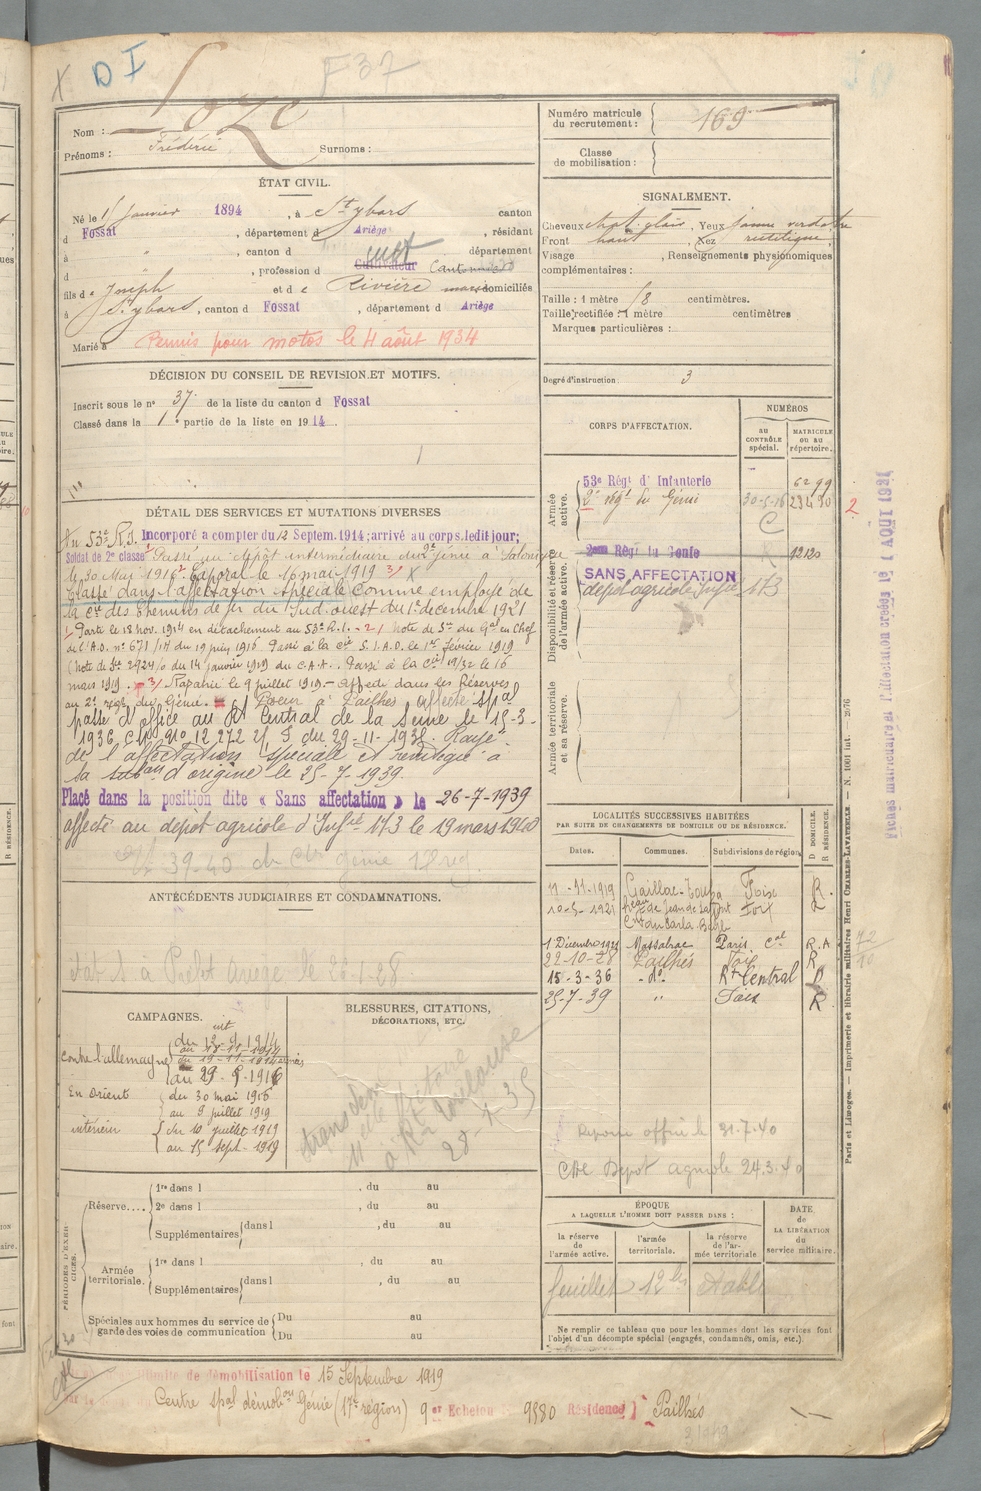 X D I F 37
Nom : Loze
Prénoms : Frédéric Surnoms :
Numéro matricule du recrutement : 169
Classe de mobilisation :
ÉTAT CIVIL.
Né le 1 Janvier 1894, à St Ybars canton
d Fossat, département d Ariège, résidant
à ", canton d département
d , profession d Cultivateur Cantonnier
fils de Joseph et de Rivière domiciliés
à St Ybars, canton d Fossat, département d Ariège
Marié à
Permis pour motos le 4 août 1934
SIGNALEMENT.
Cheveux chat. clair, Yeux jaune verdâtre
Front haut, Nez rectiligne,
Visage , Renseignements physionomiques
complémentaires :
Taille : 1 mètre 58 centimètres.
Taille rectifiée : 1 mètre centimètres
Marques particulières :
Degré d'instruction : 3
DÉCISION DU CONSEIL DE REVISION ET MOTIFS.
Inscrit sous le n° 37 de la liste du canton d Fossat
Classé dans la 1e partie de la liste en 1914.
CORPS D'AFFECTATION.
NUMÉROS
au contrôle spécial.
matricule ou au répertoire.
Armée active.
53e Régt d'Infanterie 6299
2e régt du Génie 30-5-16 23430
Disponibilité et réserve de l'armée active.
2eme Régt du Génie 12120
SANS AFFECTATION
dépot agricole Infie 173
Armée territoriale et sa réserve.
DÉTAIL DES SERVICES ET MUTATIONS DIVERSES
Au 53e R.I. Incorporé à compter du 12 Septem. 1914; arrivé au corps, ledit jour;
Soldat de 2e classe Passé au dépot intermédiaire du 2e génie à Salonique
le 30 Mai 1916 2/ Caporal le 16 mai 1919 3/ X
Classé dans l'affectation spéciale comme employé de
la Cie des Chemins de fer du Sud-ouest du 1er décembre 1921
1/ Parti le 18 nov. 1914 en détachement au 53e R.I. - 2/ Note de Sce du Gal en Chef
de l'A.O. n° 671/1A du 19 juin 1916 Passé à la Cie S.I.A.D. le 1er février 1919
(Note de Sce 2924/0 du 14 janvier 1919 du C.A.A. Passé à la Cie 19/32 le 16
mars 1919. 3/ Rapatrié le 9 juillet 1919. - Affecté dans les Réserves
au 2e régt du Génie. à Pailhès affecté spal
passé d'office au Rt Central de la Seine le 15-3-
1936 Circ n° 12 272 du 29-11-1935. Rayé
de l'affectation spéciale et réintégré à
la subon d'origine le 25-7-1939.
Placé dans la position dite « Sans affectation » le 26-7-1939
affecté au dépot agricole d'Infie 173 le 19 mars 1940
39-40
ANTÉCÉDENTS JUDICIAIRES ET CONDAMNATIONS.
LOCALITÉS SUCCESSIVES HABITÉES
PAR SUITE DE CHANGEMENTS DE DOMICILE OU DE RÉSIDENCE.
Dates. Communes. Subdivisions de région D DOMICILE. R RÉSIDENCE.
11-11-1919 Gaillac-Toulza Foix R.
10-5-1921 Foix
1 Décembre 1921 Massabrac Paris Cal R.A
22-10-28 Pailhès Foix R
15-3-36 - do - Rt Central
25-7-39 " Foix R
72
10
CAMPAGNES.
contre l'allemagne
int du 12-9-1914
au 17-11-1914
du 18-11-1914
au 29-5-1916
En Orient du 30 mai 1916
au 9 juillet 1919
intérieur du 10 juillet 1919
au 15 sept. 1919
BLESSURES, CITATIONS,
DÉCORATIONS, ETC.
à Toulouse
28-4-35
31.7.40
Dépôt agricole 24.3.40
PÉRIODES D'EXERCICES.
Réserve....
1re dans l , du au
2e dans l , du au
Supplémentaires dans l , du au
Armée territoriale.
1re dans l , du au
Supplémentaires dans l , du au
Spéciales aux hommes du service de garde des voies de communication
Du au
Du au
ÉPOQUE
A LAQUELLE L'HOMME DOIT PASSER DANS :
la réserve de l'armée active.
l'armée territoriale.
la réserve de l'armée territoriale
DATE de LA LIBÉRATION du service militaire.
feuillet 12 bis établi
Ne remplir ce tableau que pour les hommes dont les services font
l'objet d'un décompte spécial (engagés, condamnés, omis, etc.).
de démobilisation le 15 Septembre 1919
Centre spal démobon Génie (17e région) 9er Echelon N° 9580 Résidence } Pailhès
Paris et Limoges. — Imprimerie et librairie militaires Henri CHARLES-LAVAUZELLE — N. 1001 int.
Fiches matriculaire et d'affectation créées le 1 AOUT 1931
2